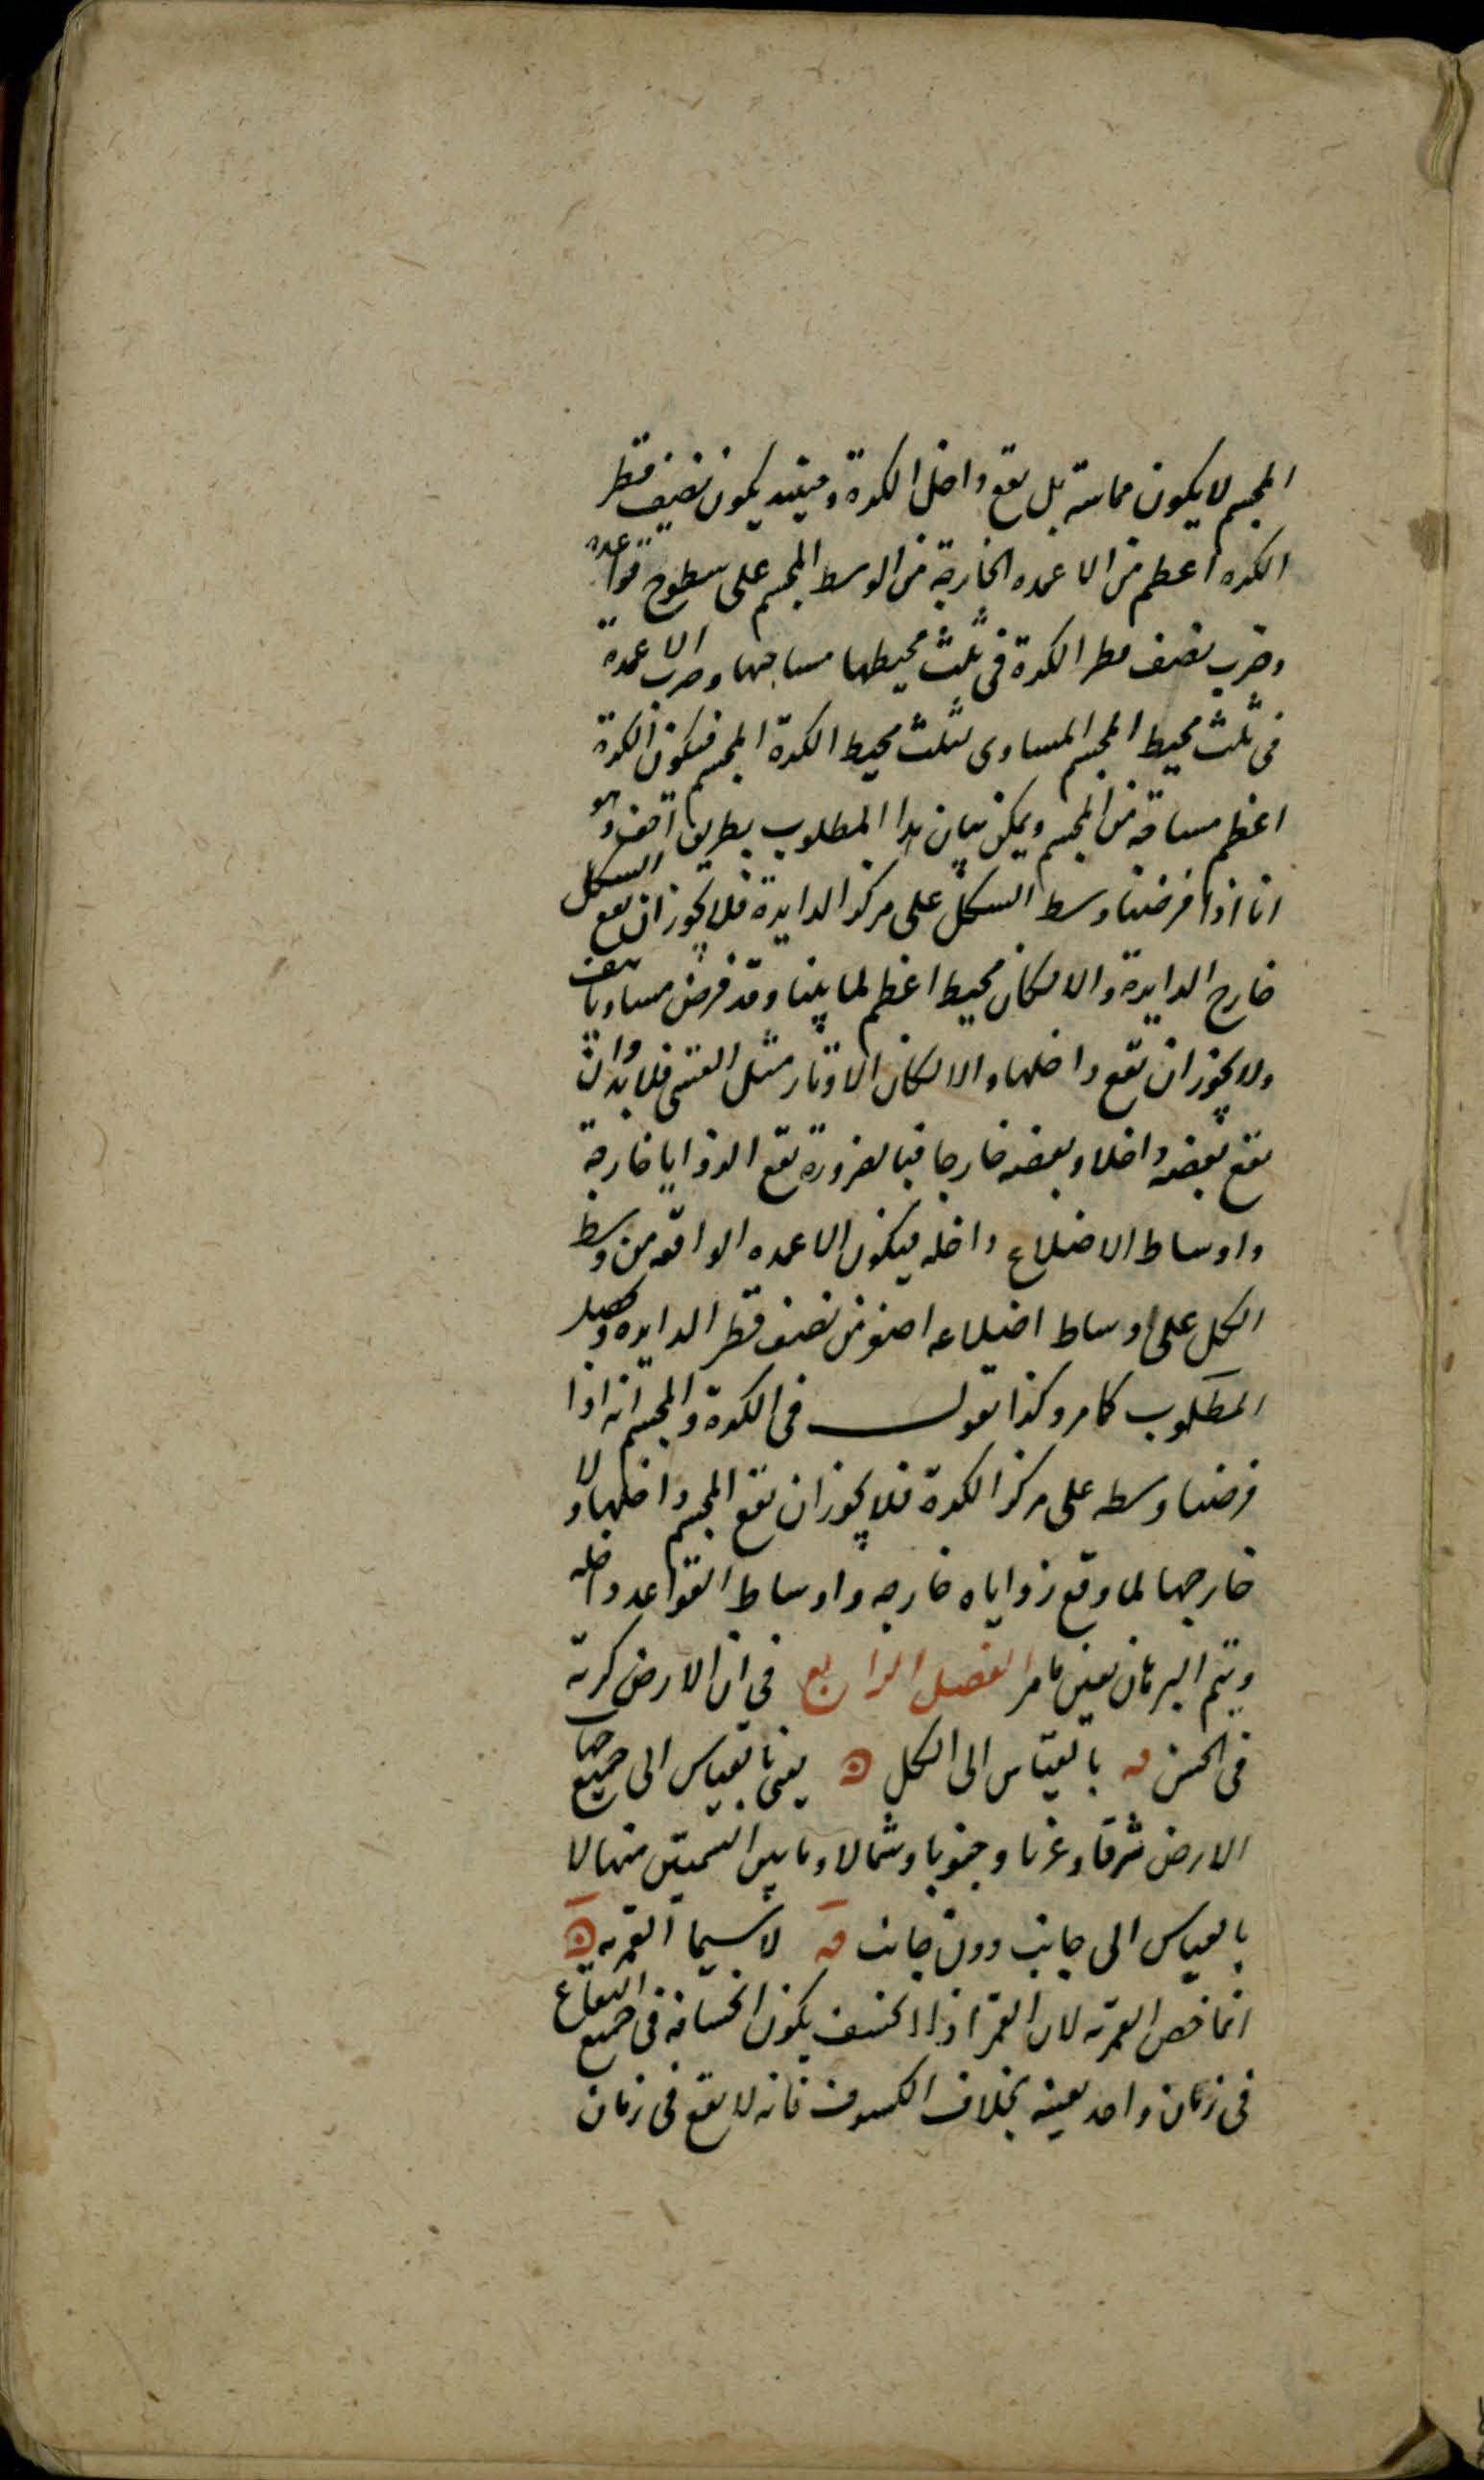 المجسم لا يكون مماسة بل يقع داخل الكرة وحينئذ يكون نصف قطر
الكرة اعظم من الاعمدة الخارجة من الوسط المجسم على سطوح قواعده
وضرب نصف قطر الكرة في ثلث محيطها مساحتها وضرب الاعمدة
في ثلث محيط المجسم المساوى لثلث محيط الكرة المجسم فيكون الكرة
اعظم مساحة من المجسم ويمكن بيان هذا المطلوب بطريق اخف وهو
انا اذا فرضنا وسط الشكل على مركز الدايرة فلا يجوز ان يقع الشكل
خارج الدايرة والا لكان محيط اعظم لما بينا وقد فرض مساويا هف
ولا يجوز ان تقع داخلها والا لكان الاوتار مثل القسى فلا بد وان
يقع بعضه داخلا وبعضه خارجا فبالضرورة تقع الزوايا خارجة
واوساط الاضلاع داخله فيكون الاعمده الواقعه من وسط
الكل على اوساط اضلاعه اصغر من نصف قطر الدايره وحصل
المطلوب كما مر وكذا نقول في الكرة والمجسم انه اذا
فرضنا وسطه على مركز الكرة فلا يجوز ان يقع المجسم داخلها ولا
خارجها لما وقع زواياه خارجه واوساط القواعد داخله
ويتم البرهان بعين ما مر الفصل الرابع في ان الارض كرية
في الحس قه بالقياس الى الكل يعنى بالقياس الى جميع جهات
الارض شرقا وغربا وجنوبا وشمالا وما بين السمتين منها لا
بالقياس الى جانب دون جانب قه لا سيما القمرية
انما خص القمرية لان القمر اذا انخسف يكون انخسافه في جميع البقاع
في زمان واحد بعينه بخلاف الكسوف فانه لا يقع في زمان